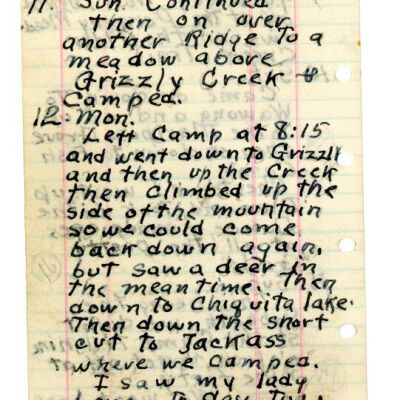 11. Sun. Continued
then on over
another Ridge to a
meadow above
Grizzly Creek &
Camped.
12. Mon.
Left Camp at 8:15
and went down to Grizzly
and then up the Creek
then climbed up the
side of the mountain
so we could come
back down again,
but saw a deer in
the meantime. Then
down to Chiquita lake.
Then down the short
cut to Jackass
where we camped.
I saw my lady
to day